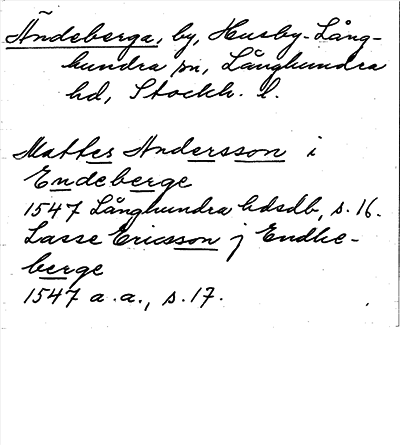 Ändeberga, by, Husby-Lång-
hundra sn, Långhundra
hd, Stockh. l.
Mattes Andersson i
Endeberge
1547 Långhundra hdsdb, s. 16.
Lasse Ericsson j Endke-
berge
1547 a.a., s. 17.